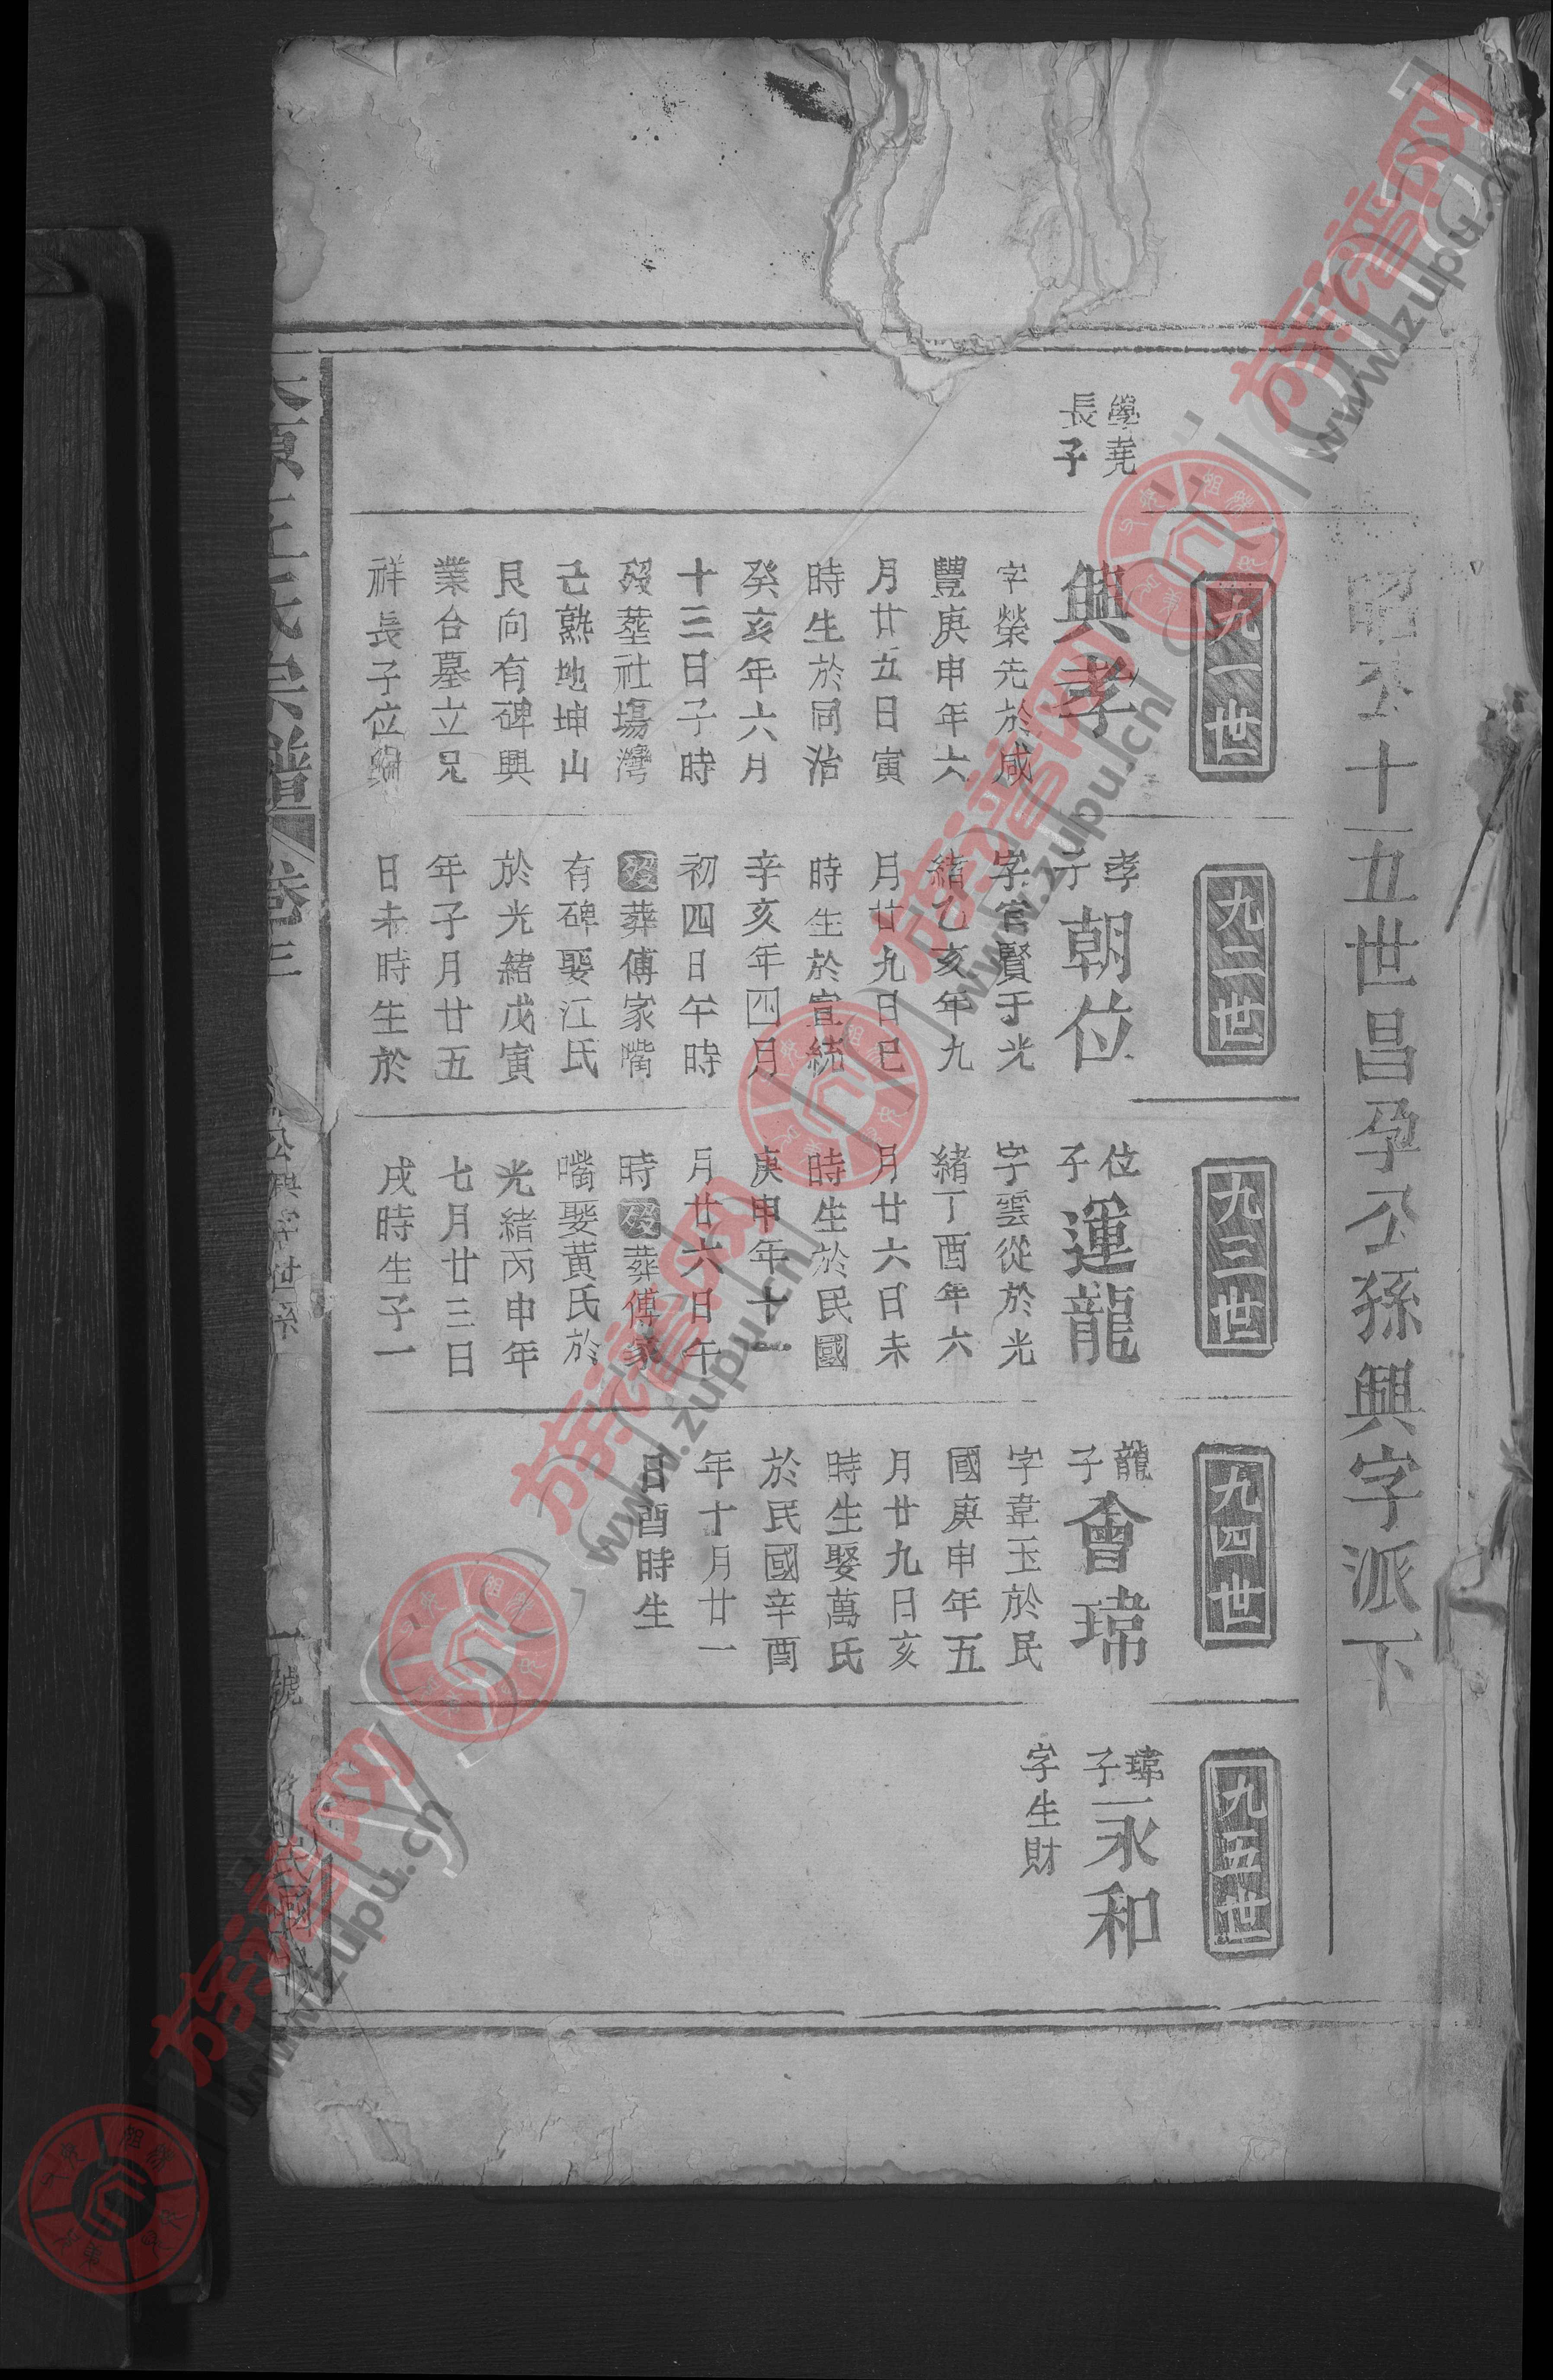 昭公十五世昌孕公孫興字派下
九一世
學堯
長子
興孝
字榮先於咸
豐庚申年六
月廿五日寅
時生於同治
癸亥年六月
十三日子時
歿塟社塲灣
己熟地坤山
艮向有碑興
業合墓立兄
祥長子位繼
九二世
孝
子
朝位
字官賢于光
緒乙亥年九
月廿九日巳
時生於宣統
辛亥年四月
初四日午時
歿葬傅家嘴
有碑娶江氏
於光緒戊寅
年子月廿五
日未時生於
九三世
位
子
運龍
字雲從於光
緒丁酉年六
月廿六日未
時生於民國
庚申年十一
月廿六日午
時歿葬傅家
嘴娶黄氏於
光緒丙申年
七月廿三日
戌時生子一
九四世
龍
子
會瑋
字韋玉於民
國庚申年五
月廿九日亥
時生娶萬氏
於民國辛酉
年十月廿一
日酉時生
九五世
瑋
子
永和
字生財
卷三
一號
族谱网
www.zupu.cn
族谱网
www.zupu.cn
族谱网
www.zupu.cn
族谱网
www.zupu.cn